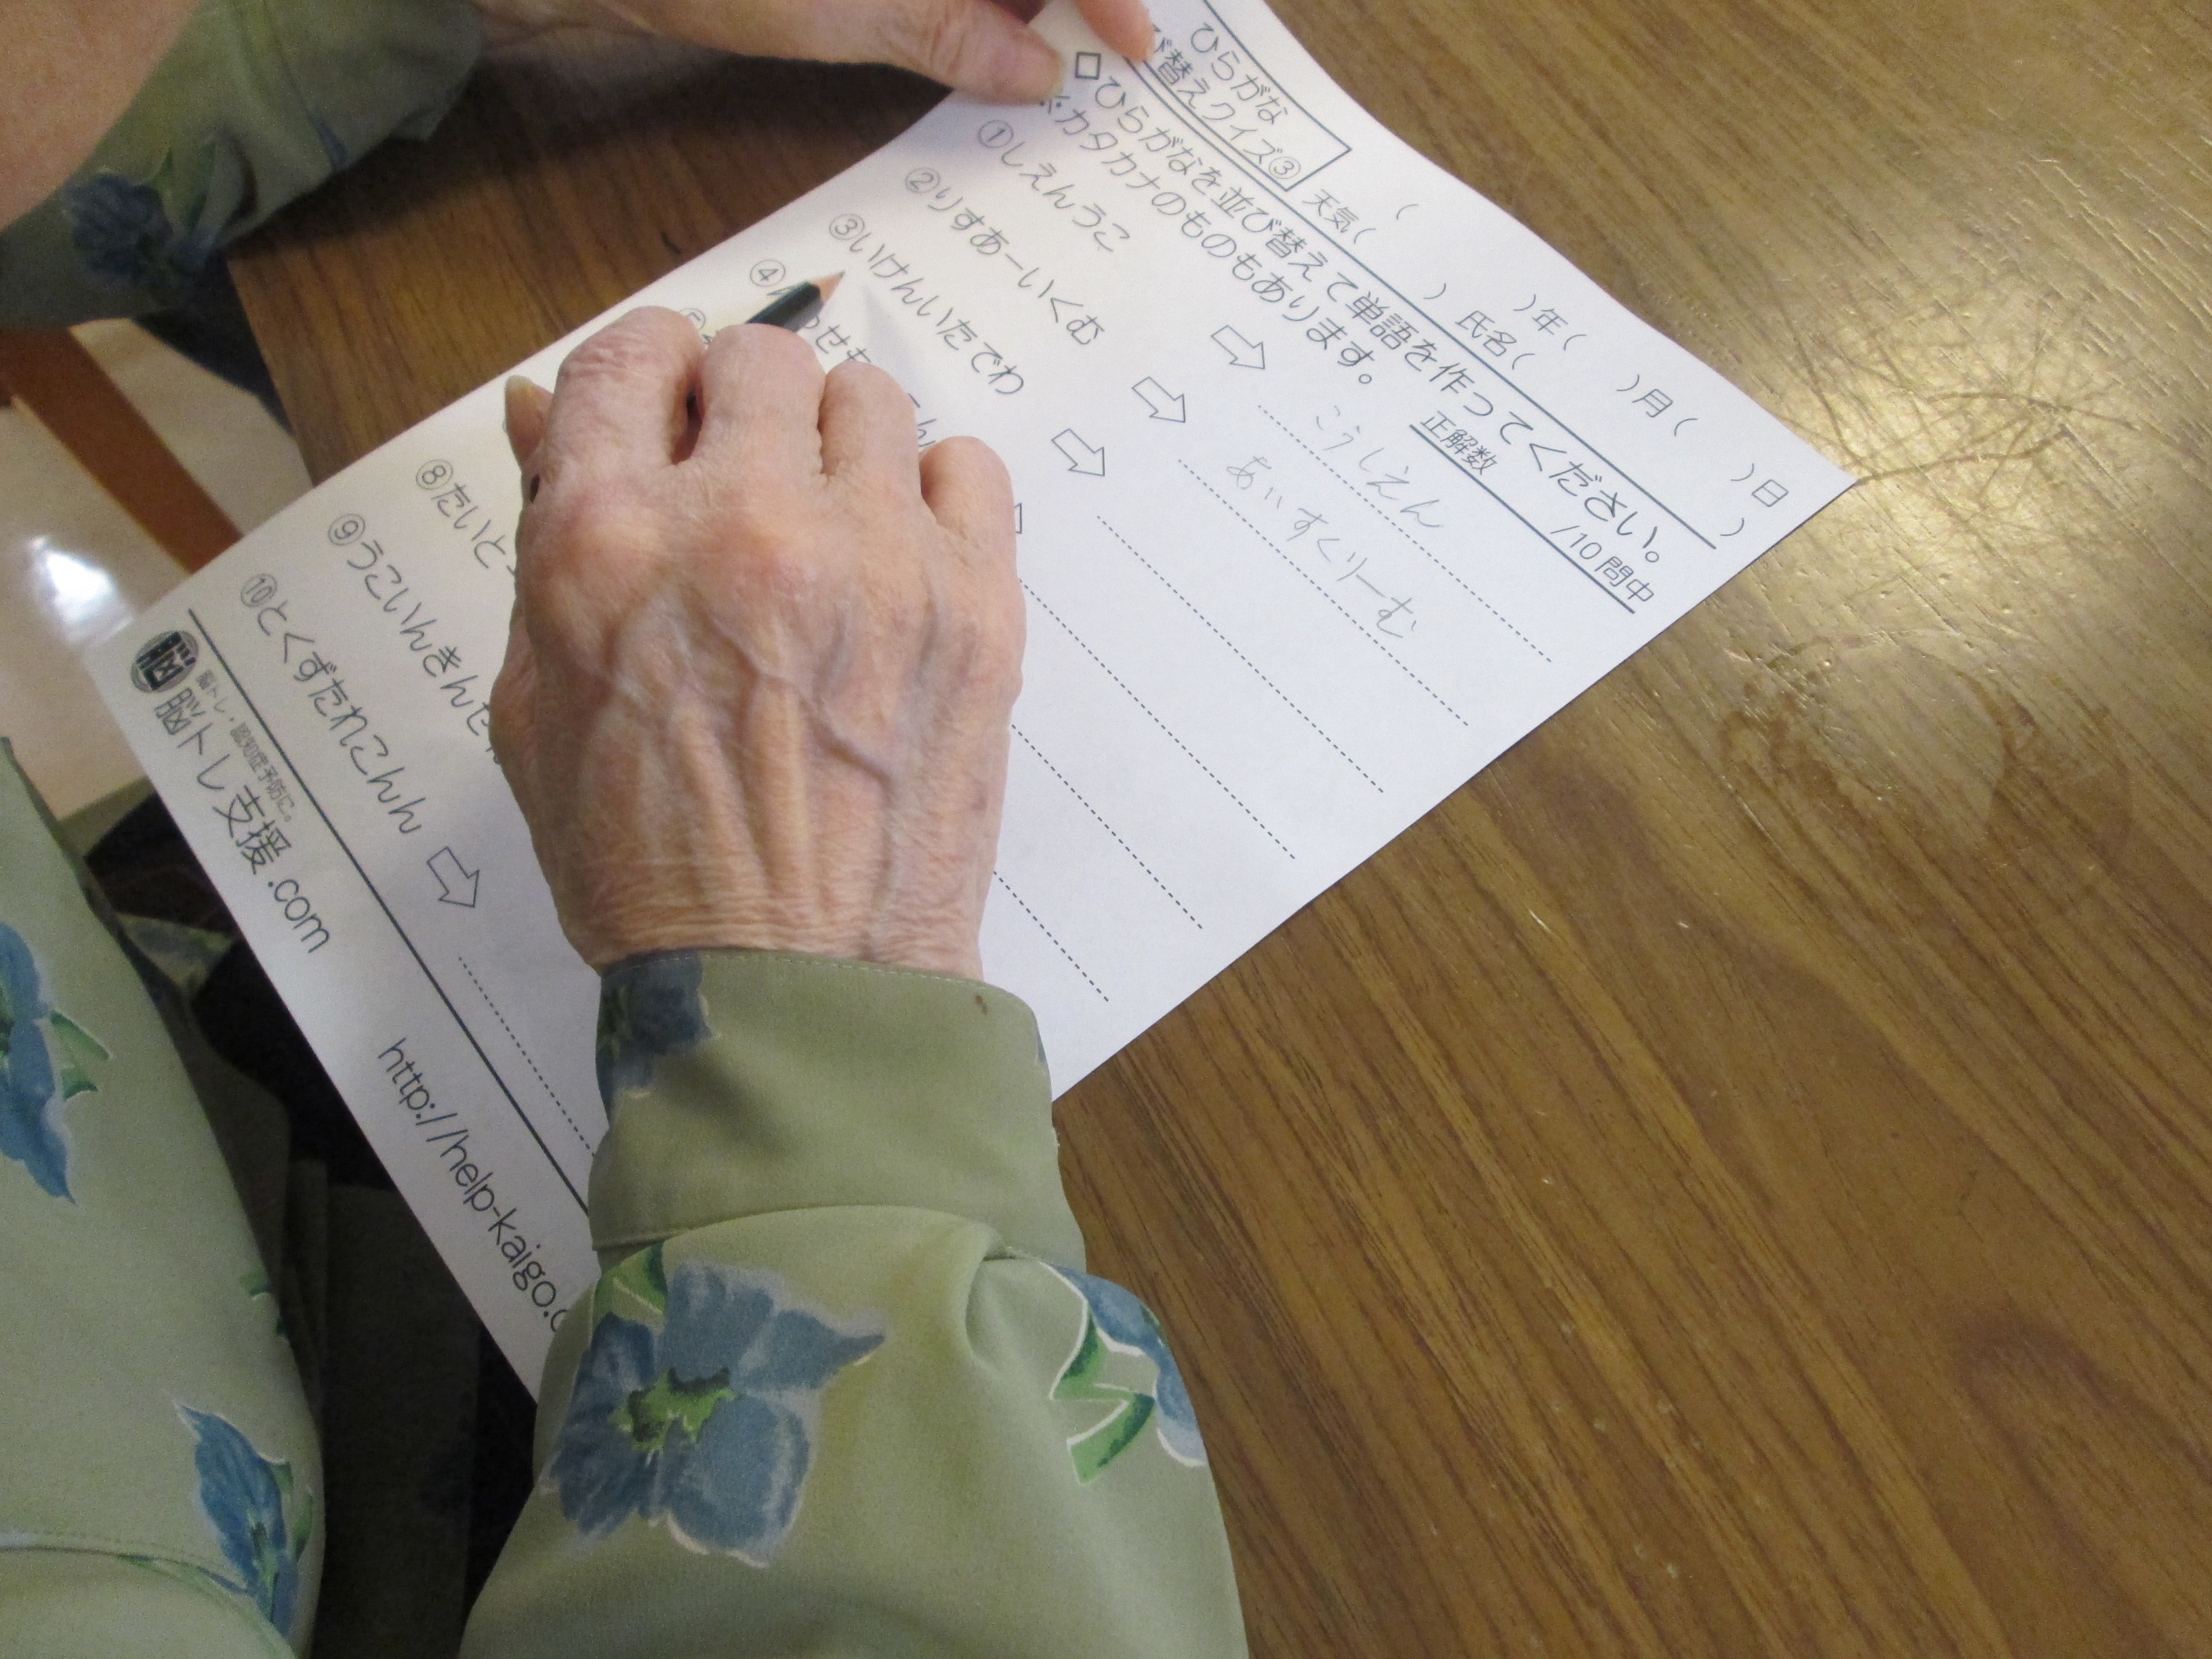 ひらがな
び替えクイズ③
( )年( )月( )日
天気( ) 氏名( )
□ひらがなを並び替えて単語を作ってください。
※カタカナのものもあります。
正解数 /10問中
①しえんうこ ⇨ こうしえん
②りすあーいくむ ⇨ あいすくりーむ
③いけんいたでわ ⇨
④
⑧たいと
⑨うこいんきんた
⑩とくずたれこんん ⇨
脳トレ・認知症予防に。
脳トレ支援.com
http://help-kaigo.c